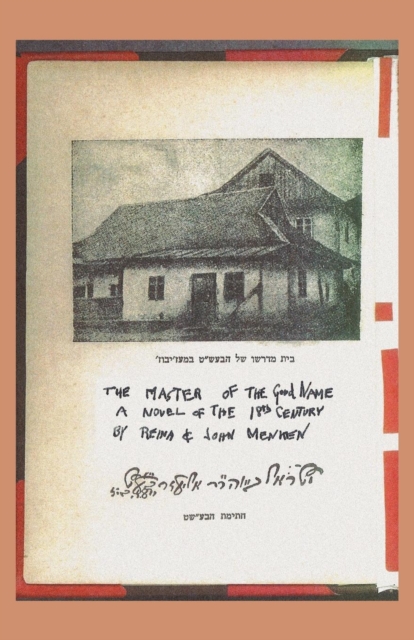 בית מדרשו של הבעש"ט במעז'יבוז'
THE MASTER OF THE Good NAME
A NOVEL OF THE 18th CENTURY
BY REINA & JOHN MENKEN
ישראל אליעזר
חתימת הבע"שט